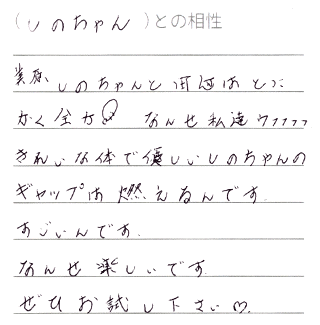 (しのちゃん)との相性
しのちゃんと は とに
かく全力 なんせ私達ワククク
きれいな体で優しいしのちゃんの
ギャップは燃えるんです.
すごいんです.
なんせ楽しいです.
ぜひお試し下さい♡.